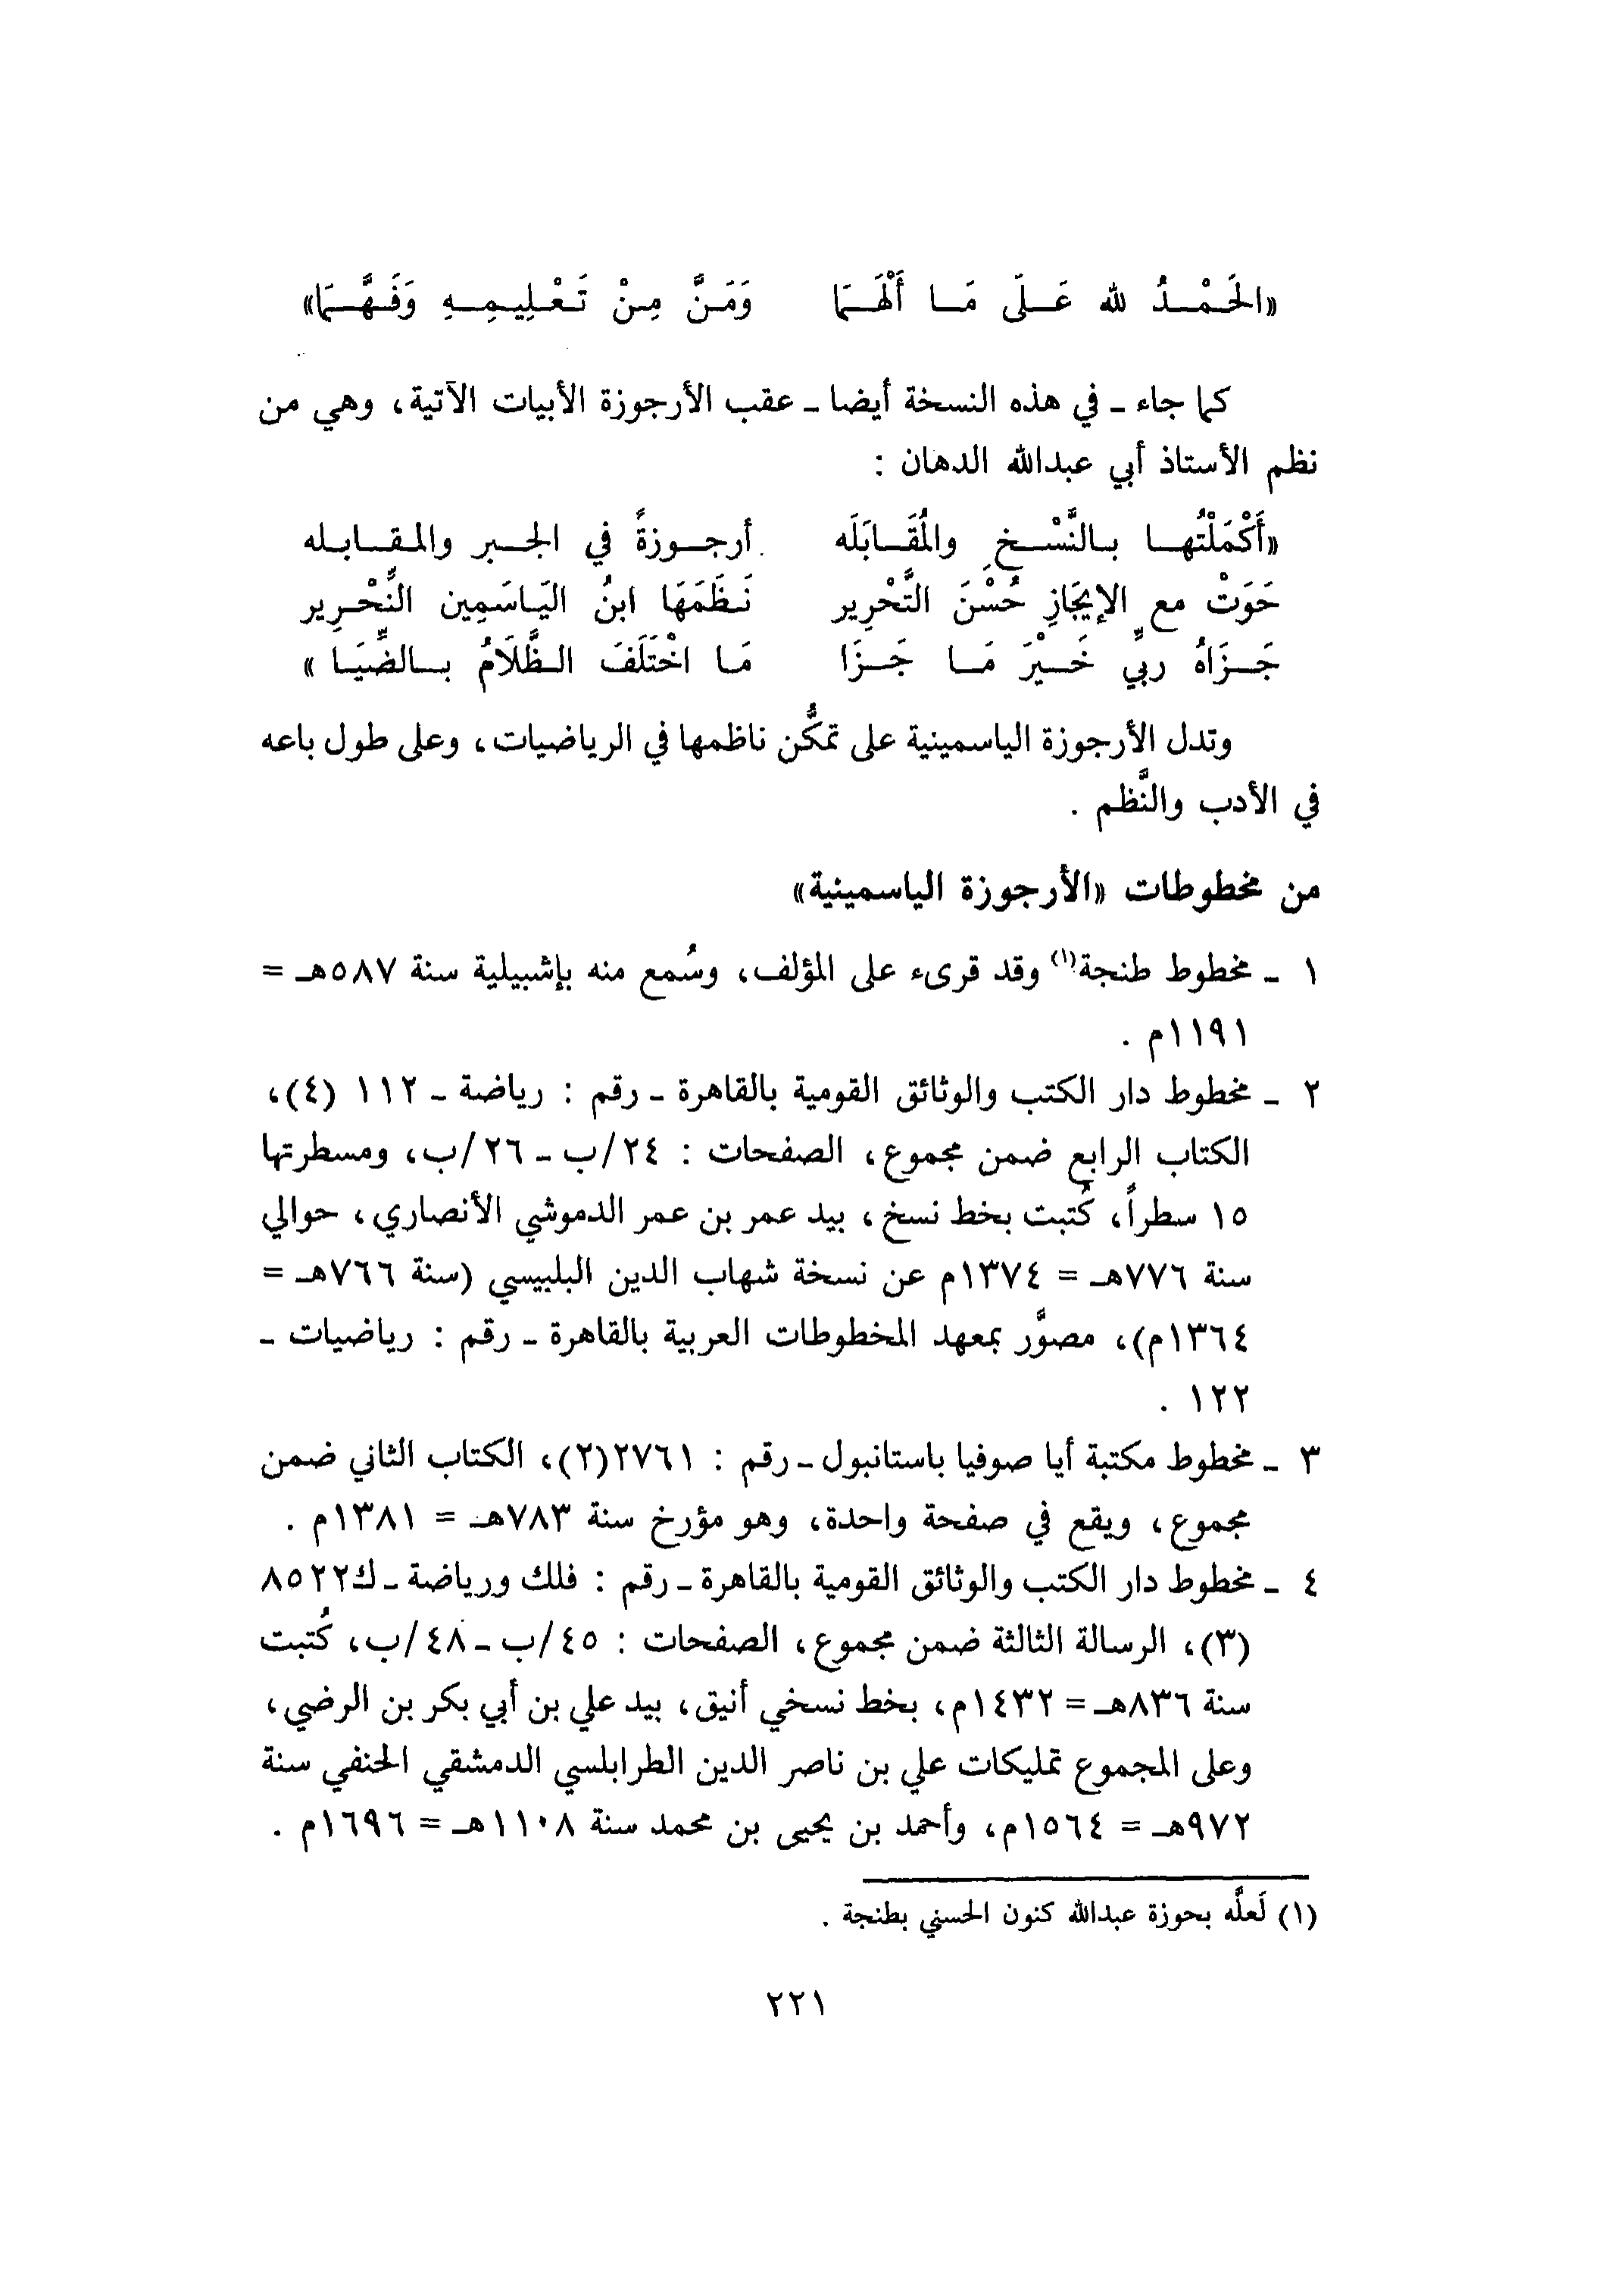 «الحَمْدُ لله عَلَى مَا أَلْهَمَا وَمَنَّ مِنْ تَعْلِيمِهِ وَفَهَّمَا»
كما جاء ـ في هذه النسخة أيضا ـ عقب الأرجوزة الأبيات الآتية، وهي من
نظم الأستاذ أبي عبدالله الدهان :
«أَكْمَلْتُها بالنَّسْخِ والمُقَابَلَه أرجوزةً في الجبر والمقابله
حَوَتْ مع الإيجَازِ حُسْنَ التَّحْرِير نَظَمَهَا ابنُ اليَاسَمِين النِّحْرِير
جَزَاهُ ربِّي خَيْرَ مَا جَزَا مَا اخْتَلَفَ الظَّلَامُ بالضِّيَا »
وتدل الأرجوزة الياسمينية على تمكُّن ناظمها في الرياضيات، وعلى طول باعه
في الأدب والنَّظم .
من مخطوطات «الأرجوزة الياسمينية»
١ ـ مخطوط طنجة(١) وقد قرىء على المؤلف، وسُمع منه بإشبيلية سنة ٥٨٧هـ =
١١٩١م .
٢ ـ مخطوط دار الكتب والوثائق القومية بالقاهرة ـ رقم : رياضة ـ ١١٢ (٤)،
الكتاب الرابع ضمن مجموع، الصفحات : ٢٤/ب ـ ٢٦/ب، ومسطرتها
١٥ سطراً، كُتبت بخط نسخ، بيد عمر بن عمر الدموشي الأنصاري، حوالي
سنة ٧٧٦هـ = ١٣٧٤م عن نسخة شهاب الدين البلبيسي (سنة ٧٦٦هـ =
١٣٦٤م)، مصوَّر بمعهد المخطوطات العربية بالقاهرة ـ رقم : رياضيات ـ
١٢٢ .
٣ ـ مخطوط مكتبة أيا صوفيا باستانبول ـ رقم : ٢٧٦١(٢)، الكتاب الثاني ضمن
مجموع، ويقع في صفحة واحدة، وهو مؤرخ سنة ٧٨٣هـ = ١٣٨١م .
٤ ـ مخطوط دار الكتب والوثائق القومية بالقاهرة ـ رقم : فلك ورياضة ـ ك٨٥٢٢
(٣)، الرسالة الثالثة ضمن مجموع، الصفحات : ٤٥/ب ـ ٤٨/ب، كُتبت
سنة ٨٣٦هـ = ١٤٣٢م، بخط نسخي أنيق، بيد علي بن أبي بكر بن الرضي،
وعلى المجموع تمليكات علي بن ناصر الدين الطرابلسي الدمشقي الحنفي سنة
٩٧٢هـ = ١٥٦٤م، وأحمد بن يحيى بن محمد سنة ١١٠٨هـ = ١٦٩٦م .
(١) لَعلَّه بحوزة عبدالله كنون الحسني بطنجة .
٢٢١